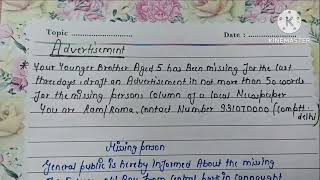 Topic
Date :
KINEMASTER
Advertisement
* Your Younger Brother Aged 5 has Been missing for the last
three days. draft an Advertisement in not more than 50 words
for the missing persons column of a local Newspaper
You are Ram/Rama, contact Number 931070000 (comptt.
delhi)
Missing person
General public is hereby informed About the missing